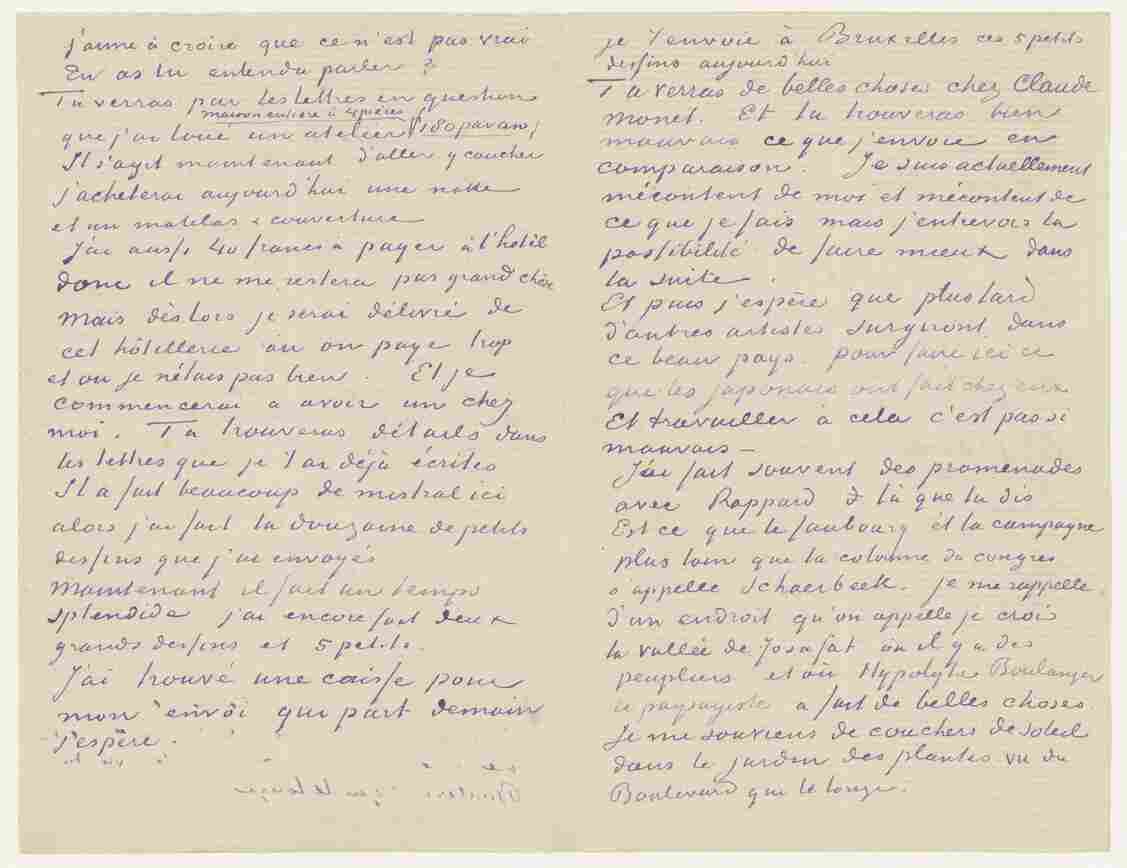 j'aime à croire que ce n'est pas vrai
En as tu entendu parler?
Tu verras par les lettres en question
maison entière à 4 pièces
que j'ai loué un atelier /180 par an/
Il s'agit maintenant d'aller y coucher
j'acheterai aujourd'hui une natte
et un matelas & couverture
J'ai aussi 40 francs à payer à l'hotel
donc il ne me restera pas grand chose
Mais dès lors je serai délivré de
cet hôtellerie où on paye trop
et où je n'étais pas bien. Et je
commencerai a avoir un chez
moi. Tu trouveras détails dans
les lettres que je t'ai déjà écrites
Il a fait beaucoup de mistral ici
alors j'ai fait la douzaine de petits
dessins que j'ai envoyés
Maintenant il fait un temps
splendide j'ai encore fait deux
grands dessins et 5 petits.
J'ai trouvé une caisse pour
mon envoi qui part demain
j'espère.
je t'envoie à Bruxelles ces 5 petits
dessins aujourd'hui
Tu verras de belles choses chez Claude
Monet. Et tu trouveras bien
mauvais ce que j'envoie en
comparaison. Je suis actuellement
mécontent de moi et mécontent de
ce que je fais mais j'entrevois la
possibilité de faire mieux dans
la suite.
Et puis j'espère que plus tard
d'autres artistes surgiront dans
ce beau pays. pour faire ici ce
que les japonais ont fait chez eux
Et travailler à cela c'est pas si
mauvais —
J'ai fait souvent des promenades
avec Rappard là que tu dis
Est ce que le faubourg et la campagne
plus loin que la colonne du congres
s'appelle Schaerbeek. je me rappelle
d'un endroit qu'on appelle je crois
la vallée de Josafat où il y a des
peupliers et où Hypolyte Boulanger
le paysagiste a fait de belles choses.
Je me souviens de couchers de soleil
dans le jardin des plantes vu du
Boulevard qui le longe.